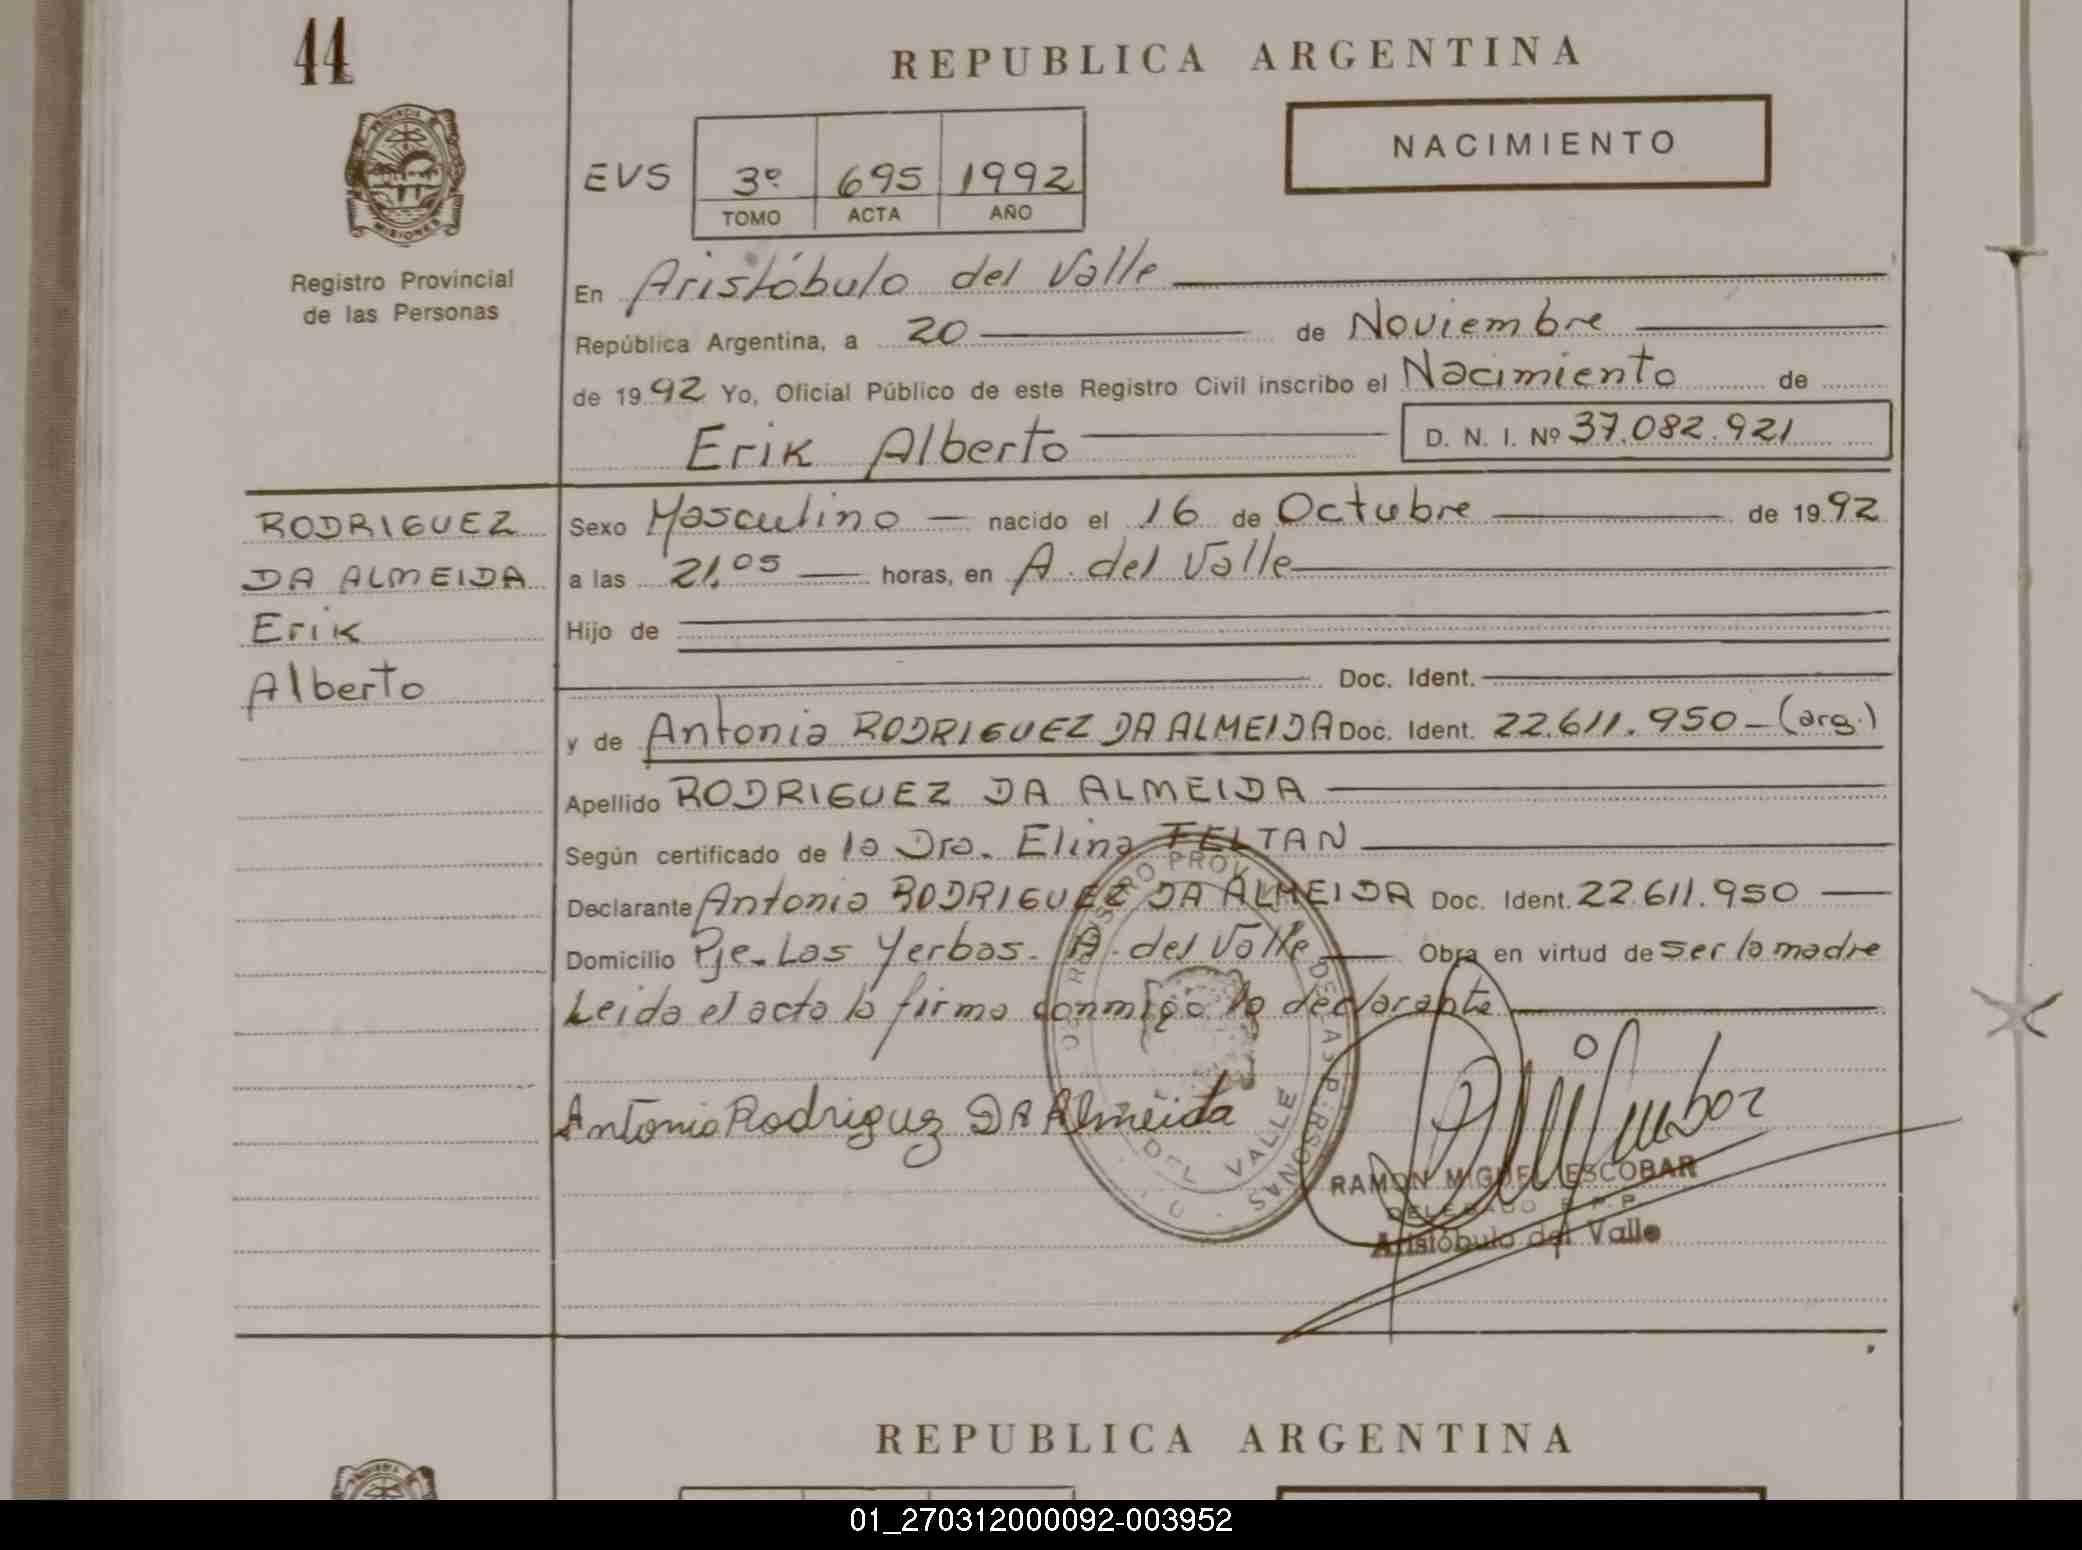 44
REPUBLICA ARGENTINA
PROVINCIA DE
MISIONES
Registro Provincial
de las Personas
NACIMIENTO
EVS 3º 695 1992
TOMO ACTA AÑO
En Aristóbulo del Valle
República Argentina, a 20 de Noviembre
de 1992 Yo, Oficial Público de este Registro Civil inscribo el Nacimiento de
Erik Alberto D. N. I. Nº 37.082.921
RODRIGUEZ
DA ALMEIDA
Erik
Alberto
Sexo Masculino nacido el 16 de Octubre de 1992
a las 21,05 horas, en A. del Valle
Hijo de
Doc. Ident.
y de Antonia RODRIGUEZ DA ALMEIDA Doc. Ident. 22.611.950 - (arg.)
Apellido RODRIGUEZ DA ALMEIDA
Según certificado de la Dra. Elina FELTAN
Declarante Antonia RODRIGUEZ DA ALMEIDA Doc. Ident. 22.611.950
Domicilio Pje. Las Yerbas. A. del Valle Obra en virtud de ser la madre
Leida el acta la firma conmigo la declarante
Antonia Rodriguez DA Almeida
DEL VALLE
RAMON MIGUEL ESCOBAR
DELEGADO R.P.P.
Aristóbulo del Valle
REPUBLICA ARGENTINA
01_270312000092-003952